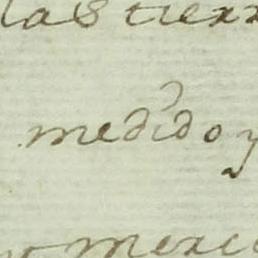 las tierr
medido y
merce